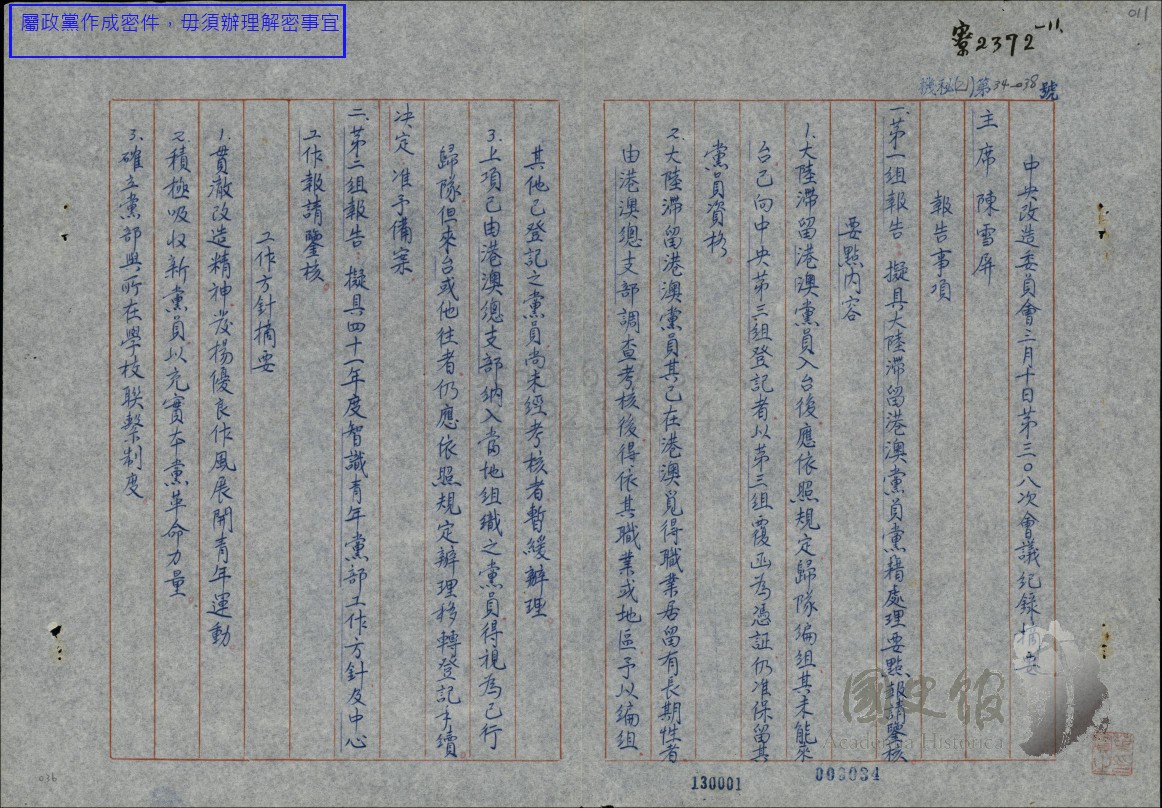 屬政黨作成密件，毋須辦理解密事宜
011
寮2372-11.
機秘(乙)第34-038號
中央改造委員會三月十日第三〇八次會議紀錄摘要
主席 陳雪屏
報告事項
一、第一組報告：擬具大陸滯留港澳黨員黨籍處理要點報請鑒核
要點內容
1.大陸滯留港澳黨員入台後應依照規定歸隊編組其未能來
台已向中央第三組登記者以第三組覆函為憑証仍准保留其
黨員資格。
2.大陸滯留港澳黨員其已在港澳覓得職業居留有長期性者
由港澳總支部調查考核後得依其職業或地區予以編組
其他已登記之黨員尚未經考核者暫緩辦理
3.上項已由港澳總支部納入當地組織之黨員得視為已行
歸隊但來台或他往者仍應依照規定辦理移轉登記手續。
決定：准予備案
二、第二組報告：擬具四十一年度智識青年黨部工作方針及中心
工作報請鑒核。
工作方針摘要
1.貫澈改造精神發揚優良作風展開青年運動。
2.積極吸收新黨員以充實本黨革命力量。
3.確立黨部與所在學校聯繫制度。
國史館
Academia Historica
130001
003034
036